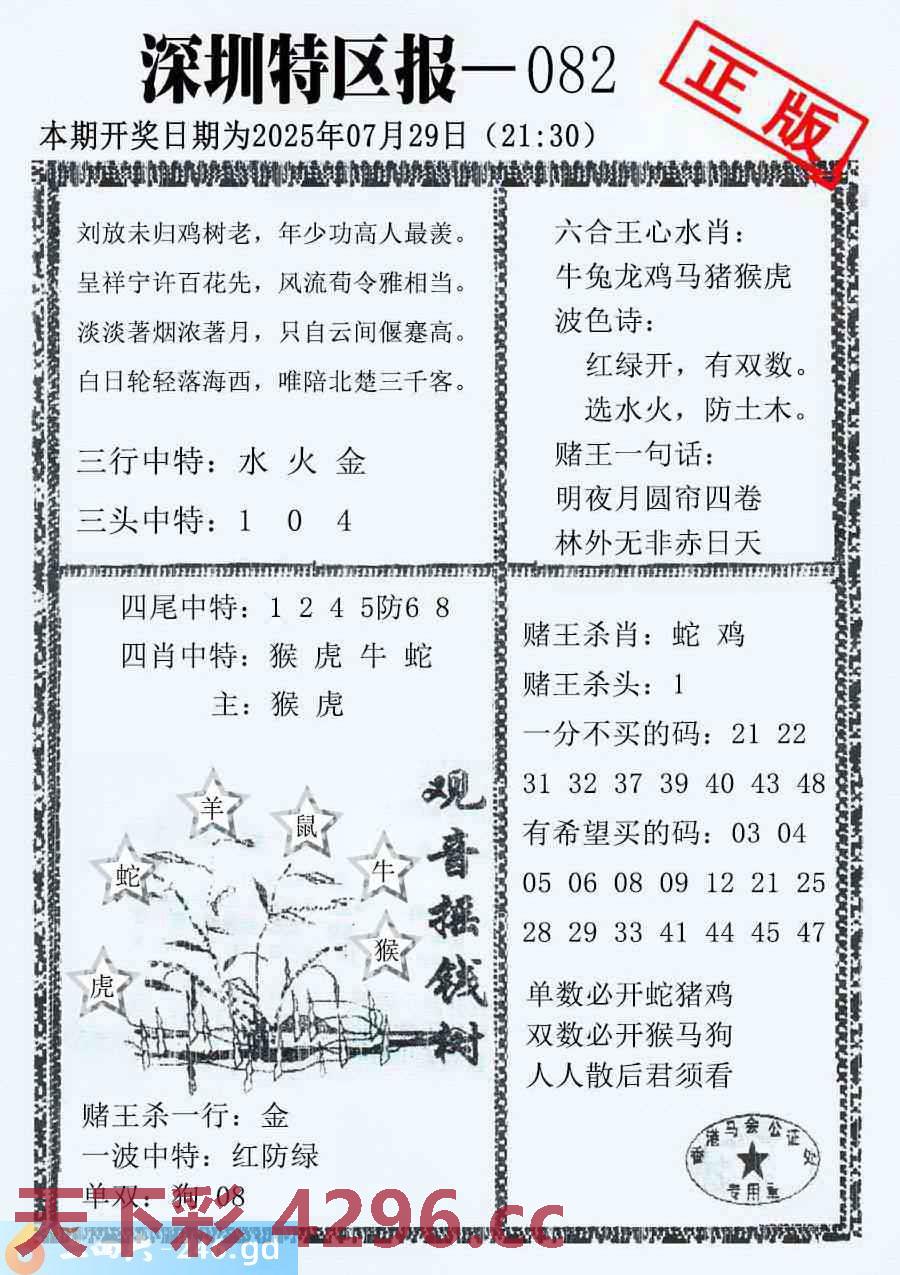 深圳特区报—082
正版
本期开奖日期为2025年07月29日（21:30）
刘放未归鸡树老，年少功高人最羡。
呈祥宁许百花先，风流荀令雅相当。
淡淡著烟浓著月，只自云间偃蹇高。
白日轮轻落海西，唯陪北楚三千客。
三行中特：水 火 金
三头中特：1 0 4
六合王心水肖：
牛兔龙鸡马猪猴虎
波色诗：
红绿开，有双数。
选水火，防土木。
赌王一句话：
明夜月圆帘四卷
林外无非赤日天
四尾中特：1 2 4 5防6 8
四肖中特：猴 虎 牛 蛇
主：猴 虎
观音摇钱树
羊
鼠
蛇
牛
猴
虎
赌王杀一行：金
一波中特：红防绿
单双：狗 08
赌王杀肖：蛇 鸡
赌王杀头：1
一分不买的码：21 22
31 32 37 39 40 43 48
有希望买的码：03 04
05 06 08 09 12 21 25
28 29 33 41 44 45 47
单数必开蛇猪鸡
双数必开猴马狗
人人散后君须看
香港马会公证处
专用章
天下彩 4296.cc